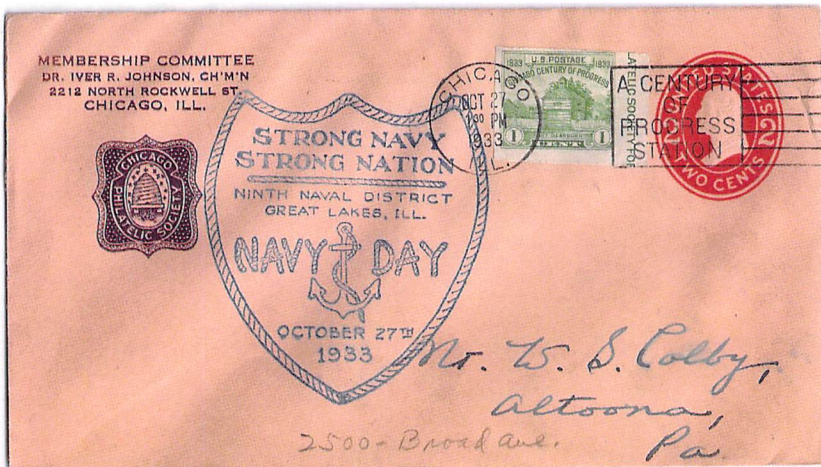 MEMBERSHIP COMMITTEE
DR. IVER R. JOHNSON, CH'M'N
2212 NORTH ROCKWELL ST.
CHICAGO, ILL.
CHICAGO
PHILATELIC SOCIETY
STRONG NAVY
STRONG NATION
NINTH NAVAL DISTRICT
GREAT LAKES, ILL.
NAVY DAY
OCTOBER 27TH
1933
CHICAGO,
OCT 27
1 30 PM
1933
ILL.
U.S. POSTAGE
1833 1933
CENTURY OF PROGRESS
1 CENT 1
A CENTURY
OF
PROGRESS
STATION
2 2
TWO CENTS
Mr. W. S. Colby,
Altoona,
2500 - Broad Ave.
Pa.